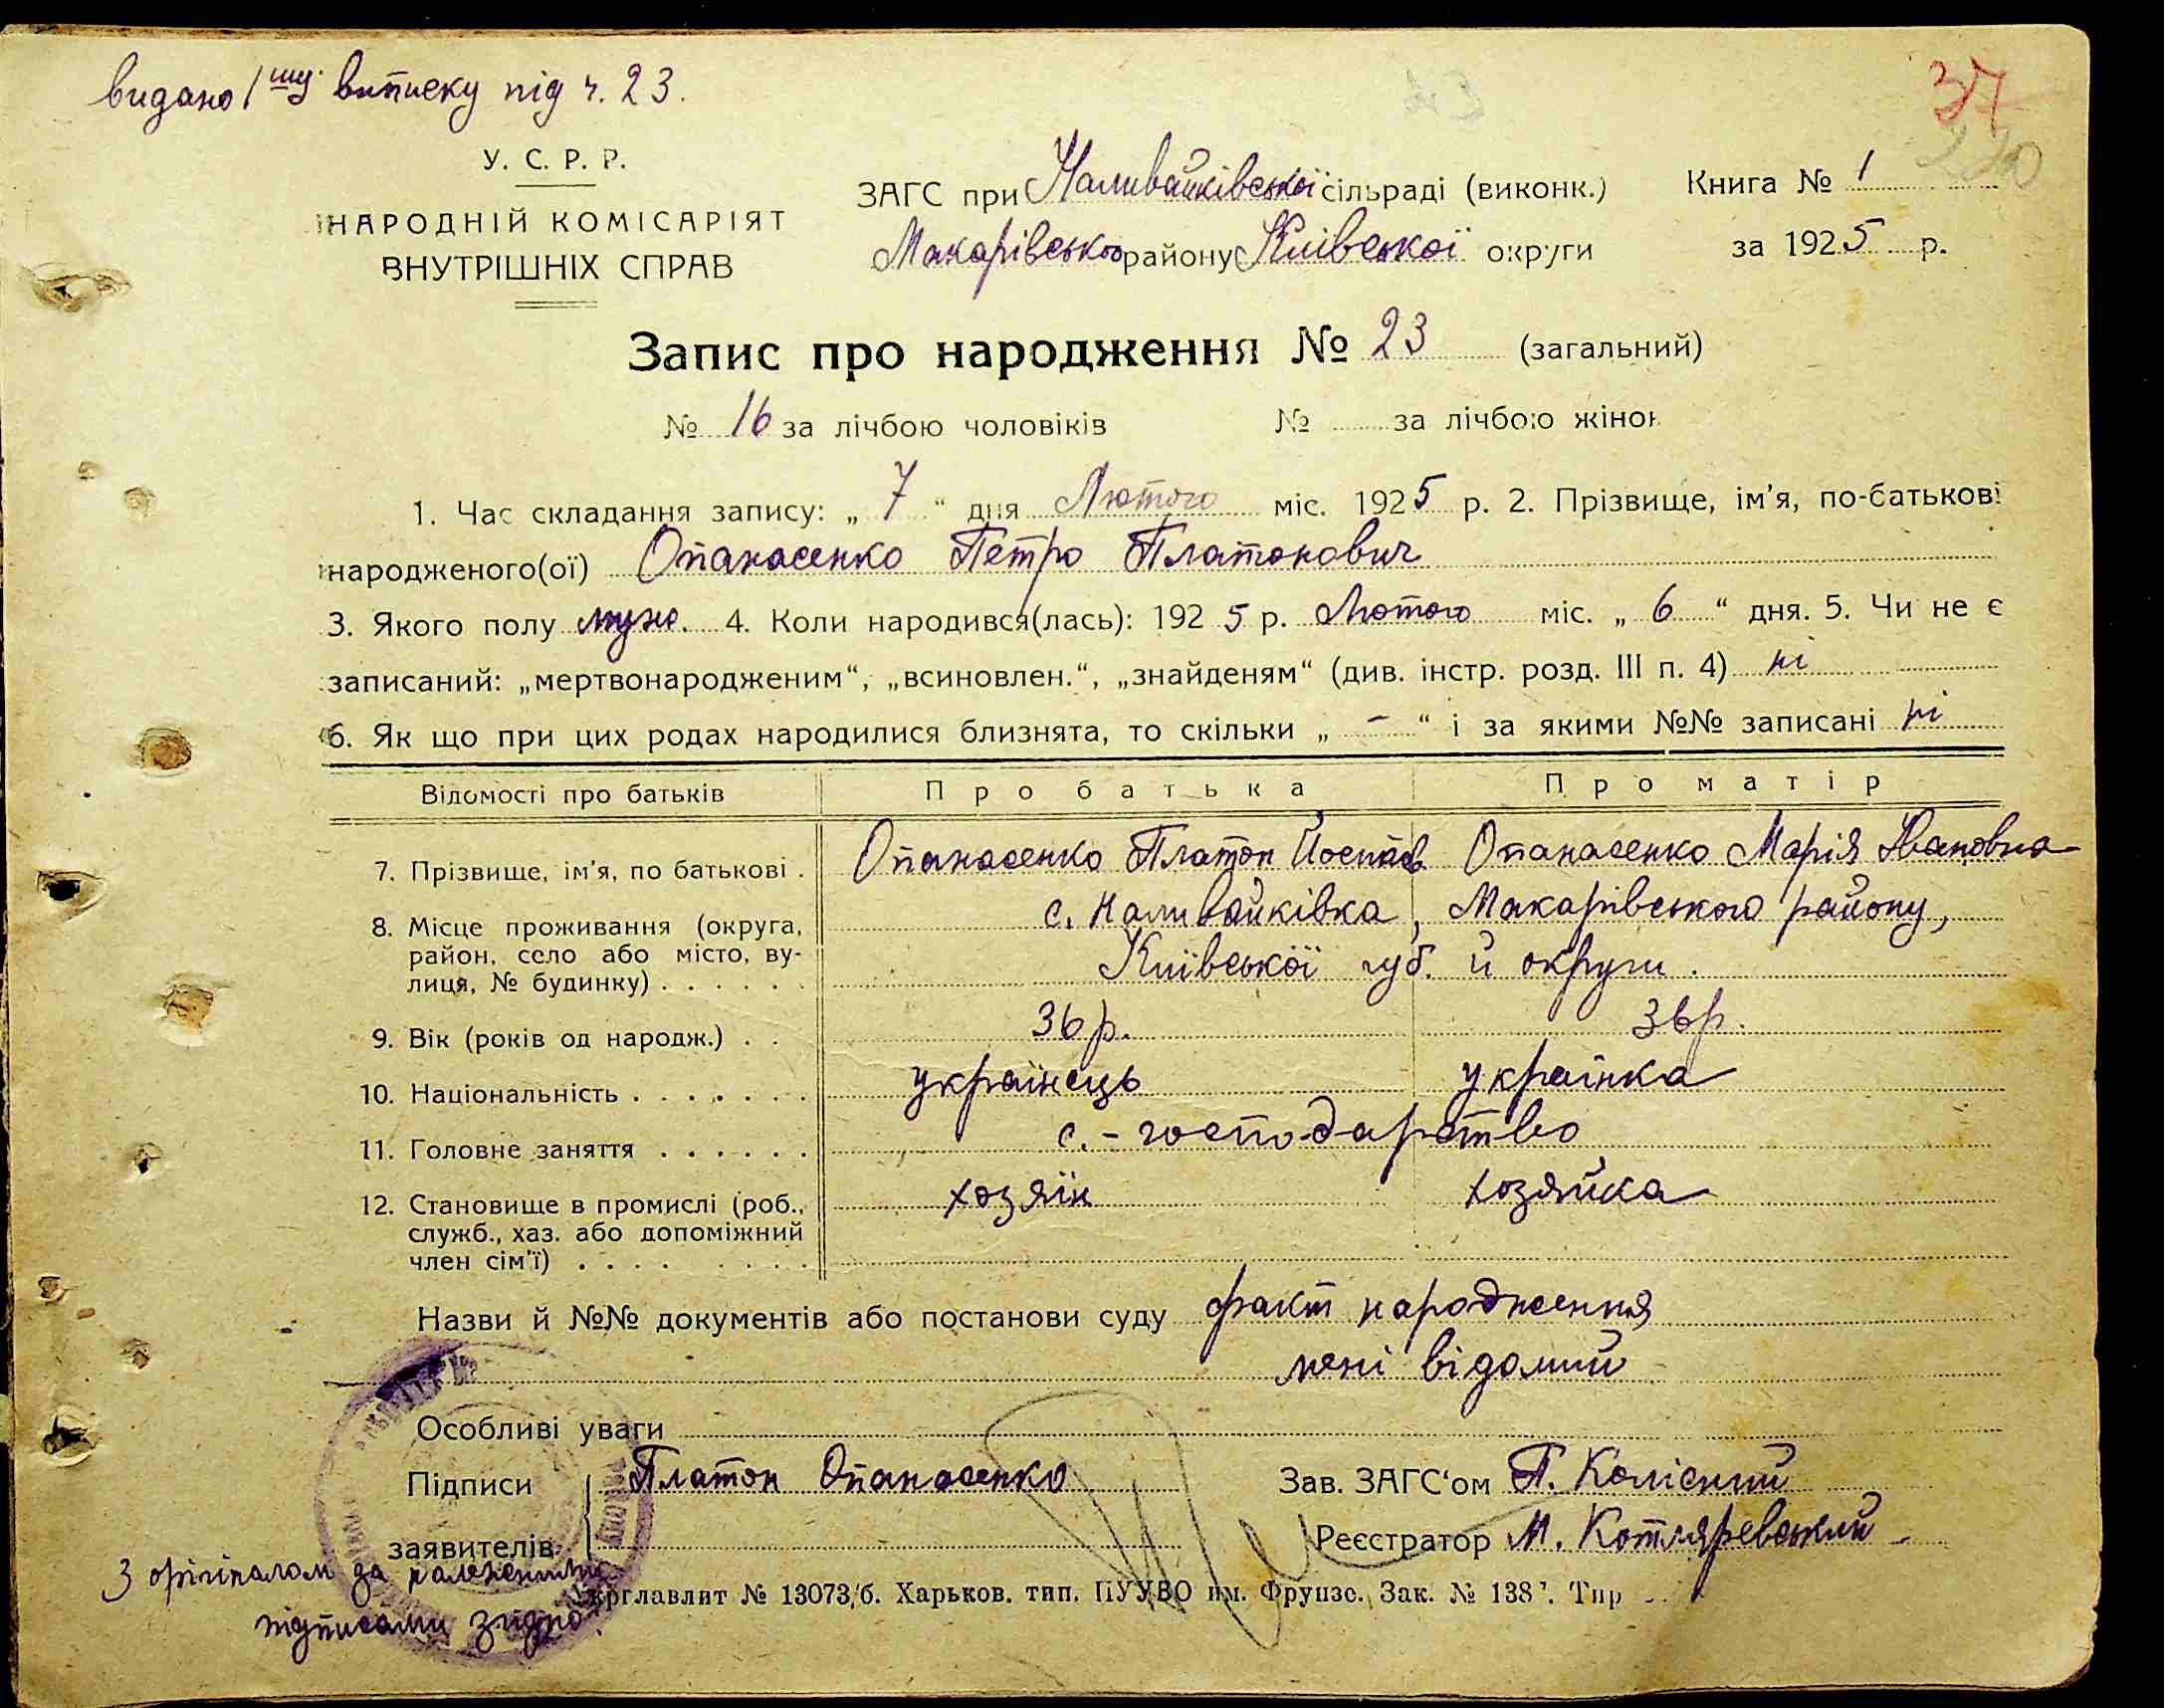 видано 1шу виписку під ч. 23.
37
У. С. Р. Р.
НАРОДНІЙ КОМІСАРІЯТ
ВНУТРІШНІХ СПРАВ
ЗАГС при Наливайківської сільраді (виконк.) Книга № 1
Макарівсько району Київської округи за 1925 р.
Запис про народження № 23 (загальний)
№ 16 за лічбою чоловіків № за лічбою жінок
1. Час складання запису: „ 7 “ дня Лютого міс. 1925 р. 2. Прізвище, ім’я, по-батькові
народженого(ої) Опанасенко Петро Платонович
3. Якого полу муж. 4. Коли народився(лась): 1925 р. Лютого міс. „ 6 “ дня. 5. Чи не є
записаний: „мертвонародженим“, „всиновлен.“, „знайденям“ (див. інстр. розд. III п. 4) ні
6. Як що при цих родах народилися близнята, то скільки „ – “ і за якими №№ записані ні
Відомості про батьків Про батька Про матір
7. Прізвище, ім’я, по батькові . Опанасенко Платон Опанасенко Марія Івановна
8. Місце проживання (округа, с. Наливайківка, Макарівського району,
район, село або місто, ву-
лиця, № будинку) . . . . . . Київської губ. й округи.
9. Вік (років од народж.) . . 36 р. 36 р.
10. Національність . . . . . . . українець українка
11. Головне заняття . . . . . . с.-господарство
12. Становище в промислі (роб., хозяїн хозяйка
служб., хаз. або допоміжний
член сім’ї) . . . . . . . .
Назви й №№ документів або постанови суду факт народження
мені відомий
Особливі уваги
Підписи Платон Опанасенко Зав. ЗАГС‘ом П. Колісний
заявителів Реєстратор М. Котляревський
З орігіналом за належними
підписами згідно.
Укрглавлит № 13073/б. Харьков. тип. ПУУВО им. Фрунзе. Зак. № 138 . Тир